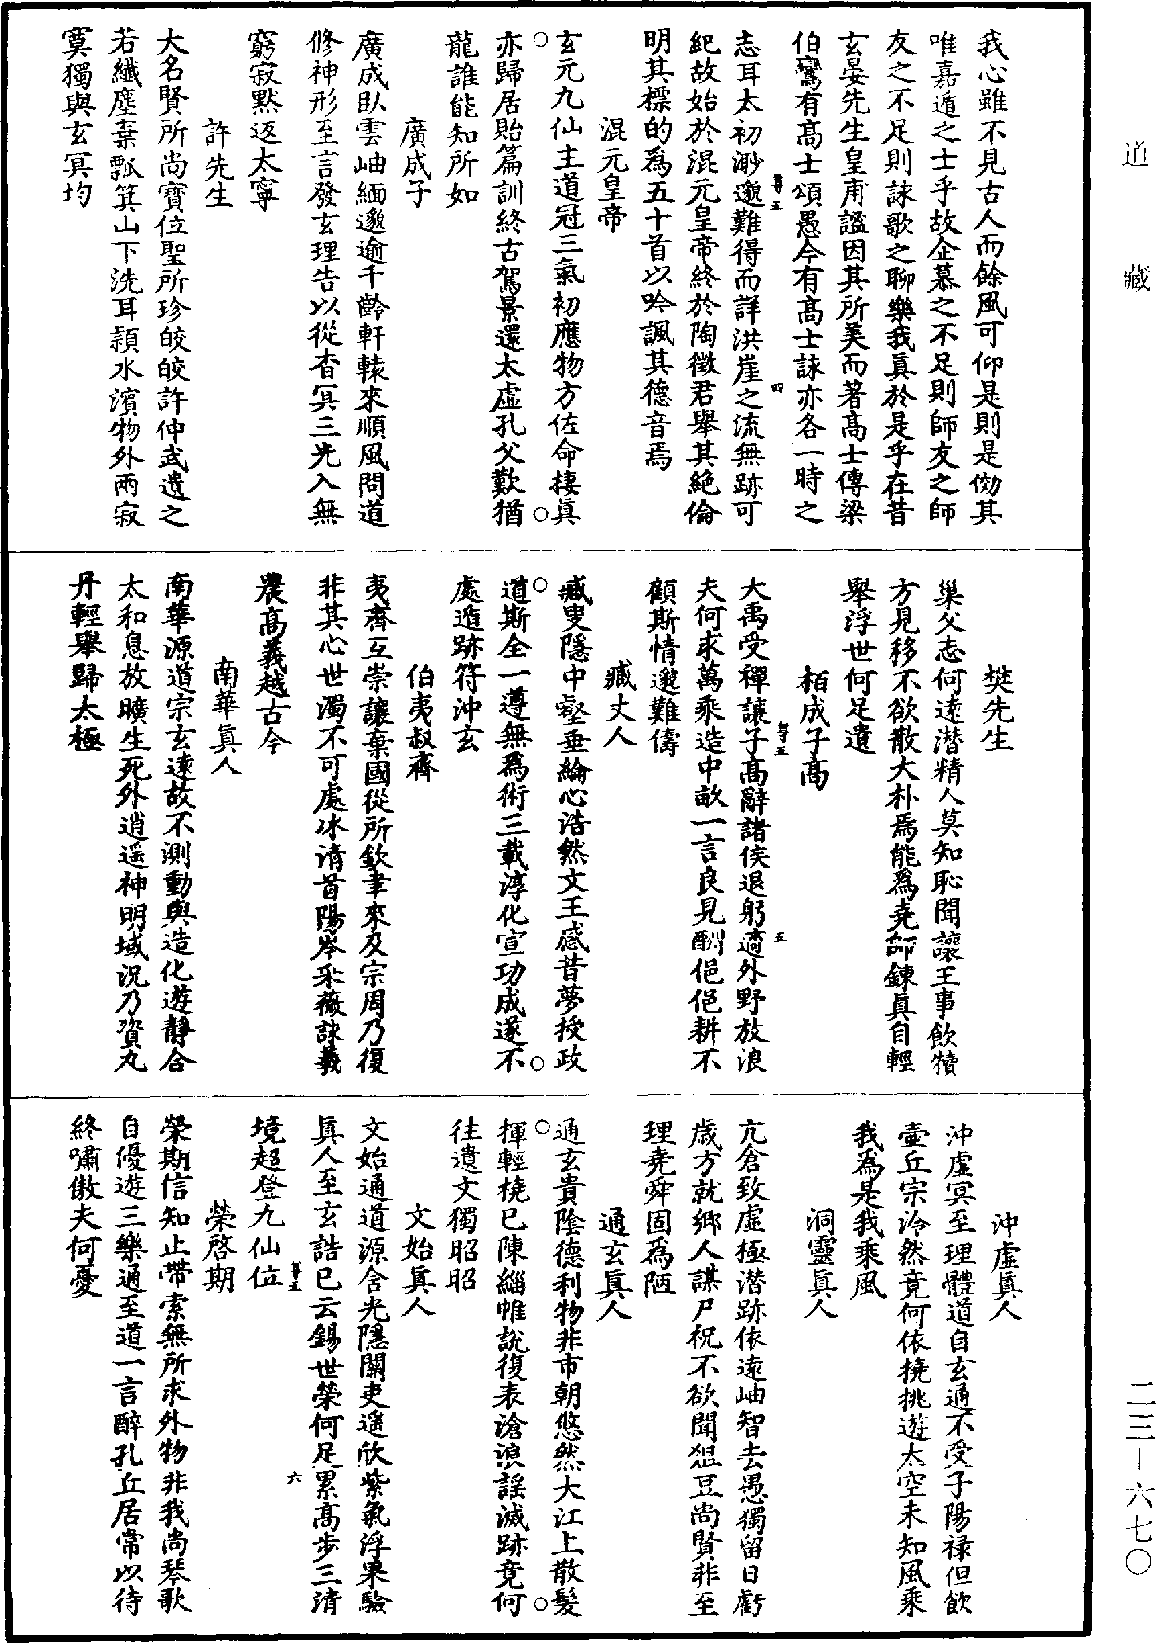 道藏
我心雖不見古人而餘風可仰是則是傚其
唯嘉遁之士乎故企慕之不足則師友之師
友之不足則詠歌之聊樂我真於是乎在昔
玄晏先生皇甫謐因其所美而著高士傳梁
伯鸞有高士頌愚今有高士詠亦各一時之
志耳太初渺邈難得而詳洪崖之流無跡可
紀故始於混元皇帝終於陶徵君舉其絶倫
明其標的為五十首以吟諷其德音焉
混元皇帝
玄元九仙主道冠三氣初應物方佐命棲真
亦歸居貽篇訓終古駕景還太虛孔父歎猶
龍誰能知所如
廣成子
廣成臥雲岫緬邈逾千齡軒轅來順風問道
修神形至言發玄理告以從杳冥三光入無
窮寂默返太寧
許先生
大名賢所尚寶位聖所珍皎皎許仲武遺之
若纖塵棄瓢箕山下洗耳潁水濱物外兩寂
寞獨與玄冥均
樊先生
巢父志何遠潛精人莫知恥聞讓王事飲犢
方見移不欲散大朴焉能為堯師鍊真自輕
舉浮世何足遺
柏成子高
大禹受禪讓子高辭諸侯退躬適外野放浪
夫何求萬乘造中畝一言良見酬俋俋耕不
顧斯情邈難儔
臧丈人
臧叟隱中壑垂綸心浩然文王感昔夢授政
道斯全一遵無為術三載淳化宣功成遂不
處遁跡符沖玄
伯夷叔齊
夷齊互崇讓棄國從所欽聿來及宗周乃復
非其心世濁不可處冰清首陽岑采薇詠羲
農高義越古今
南華真人
南華源道宗玄遠故不測動與造化遊靜合
太和息放曠生死外逍遙神明域況乃資丸
丹輕舉歸太極
沖虛真人
沖虛冥至理體道自玄通不受子陽祿但飲
壺丘宗泠然竟何依撓挑遊太空未知風乘
我為是我乘風
洞靈真人
亢倉致虛極潛跡依遠岫智去愚獨留日虧
歲方就鄉人謀尸祝不欲聞俎豆尚賢非至
理堯舜固為陋
通玄真人
通玄貴陰德利物非市朝悠然大江上散髮
揮輕橈已陳緇帷說復表滄浪謠滅跡竟何
往遺文獨昭昭
文始真人
文始通道源含光隱關吏遥欣紫氣浮果驗
真人至玄誥已云錫世榮何足累高步三清
境超登九仙位
榮啓期
榮期信知止帶索無所求外物非我尚琴歌
自優遊三樂通至道一言醉孔丘居常以待
終嘯傲夫何憂
二三—六七〇